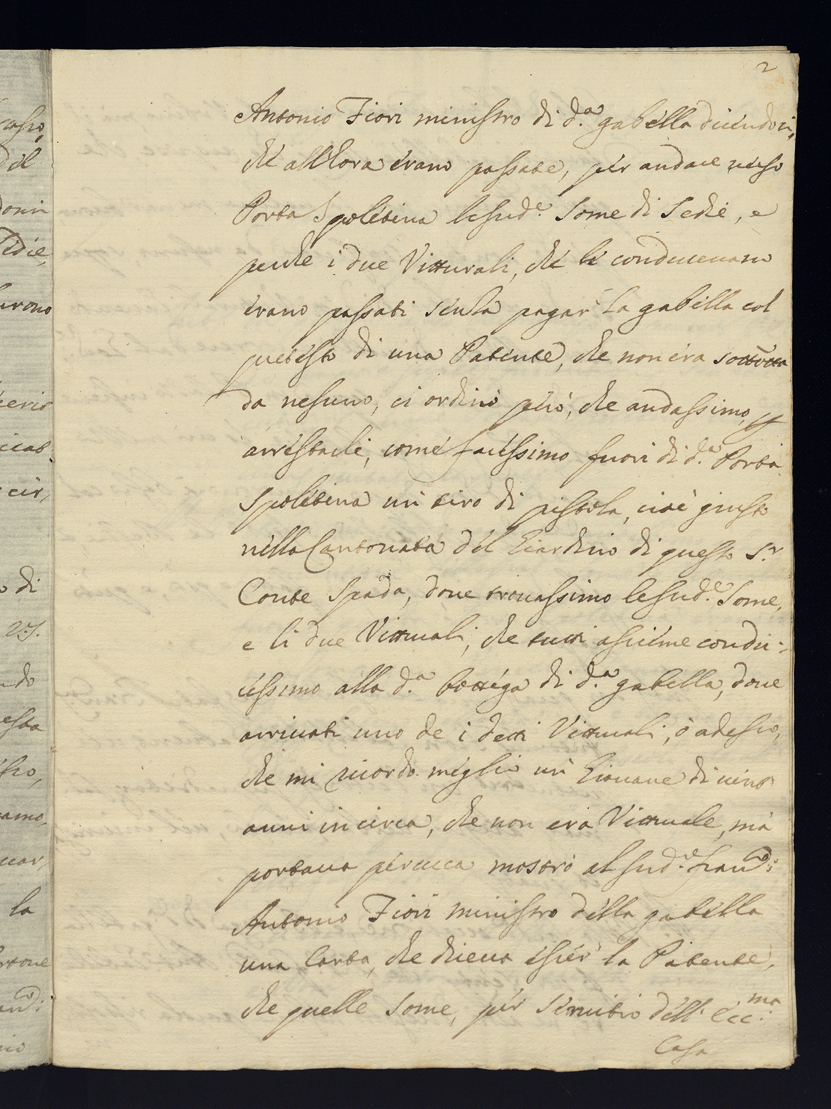 2
Antonio Fiori ministro di d.a gabella dicendoci,
che all'hora erano passate, per andare verso
Porta Spoletina le sud.e Some di Sedie, e
perche i due Vitturali, che le conducevano
erano passati senza pagar' la gabella col
pretesto di una Patente, che non era sottoscritta
da nesuno, ci ordinò però, che andassimo ad
arrestarli, come facessimo fuori di d.a Porta
Spoletina un' tiro di pistola, cioè giusto
nella Cantonata del Giardino di questo S.r
Conte Spada, dove trovassimo le sud.e Some,
e li due Vitturali, che tutti assieme condu:
cessimo alla d.a bottega di d.a gabella, dove
arrivati uno de i detti Vitturali, ò adesso,
che mi ricordo meglio un' Giovane di vinti
anni in circa, che non era Vitturale, mà
portava perucca mostrò al sud.o
Antonio Fiori ministro della gabella
una Carta, che diceva esser' la Patente,
che quelle some, per servitio dell' Ecc.ma
Casa